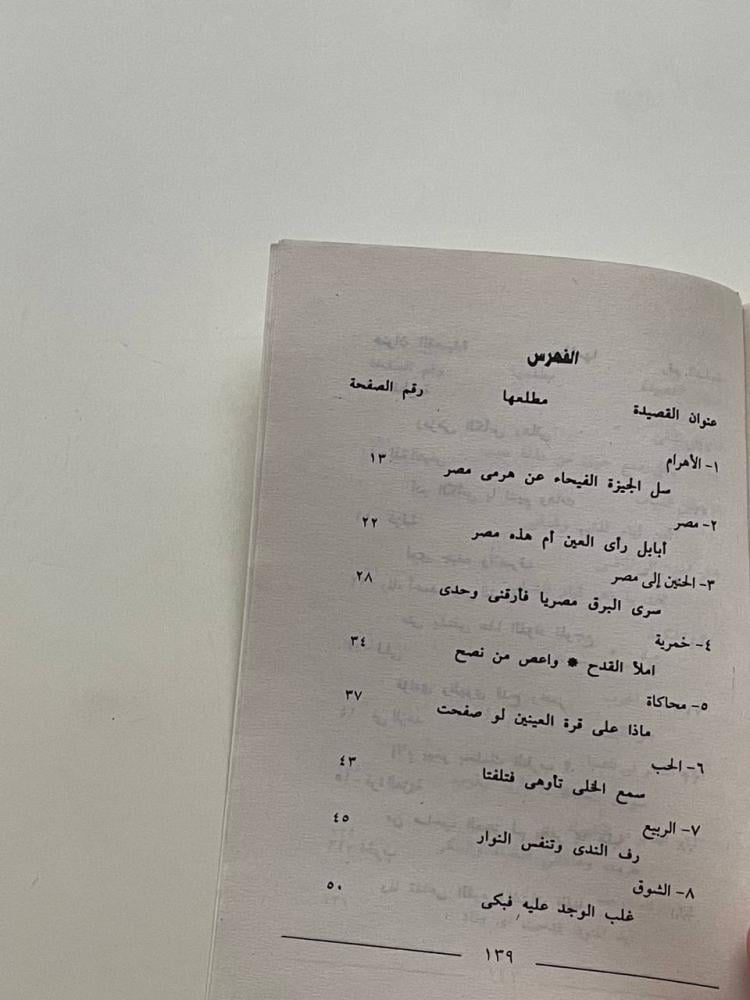 الفهرس
عنوان القصيدة مطلعها رقم الصفحة
١- الأهرام
سل الجيزة الفيحاء عن هرمى مصر ١٣
٢- مصر
أبابل رأى العين أم هذه مصر ٢٢
٣- الحنين إلى مصر
سرى البرق مصريا فأرقنى وحدى ٢٨
٤- خمرية
املأ القدح * واعص من نصح ٣٤
٥- محاكاة
ماذا على قرة العينين لو صفحت ٣٧
٦- الحب
سمع الخلى تأوهى فتلفتا ٤٣
٧- الربيع
رف الندى وتنفس النوار ٤٥
٨- الشوق
غلب الوجد عليه فبكى ٥٠
١٣٩